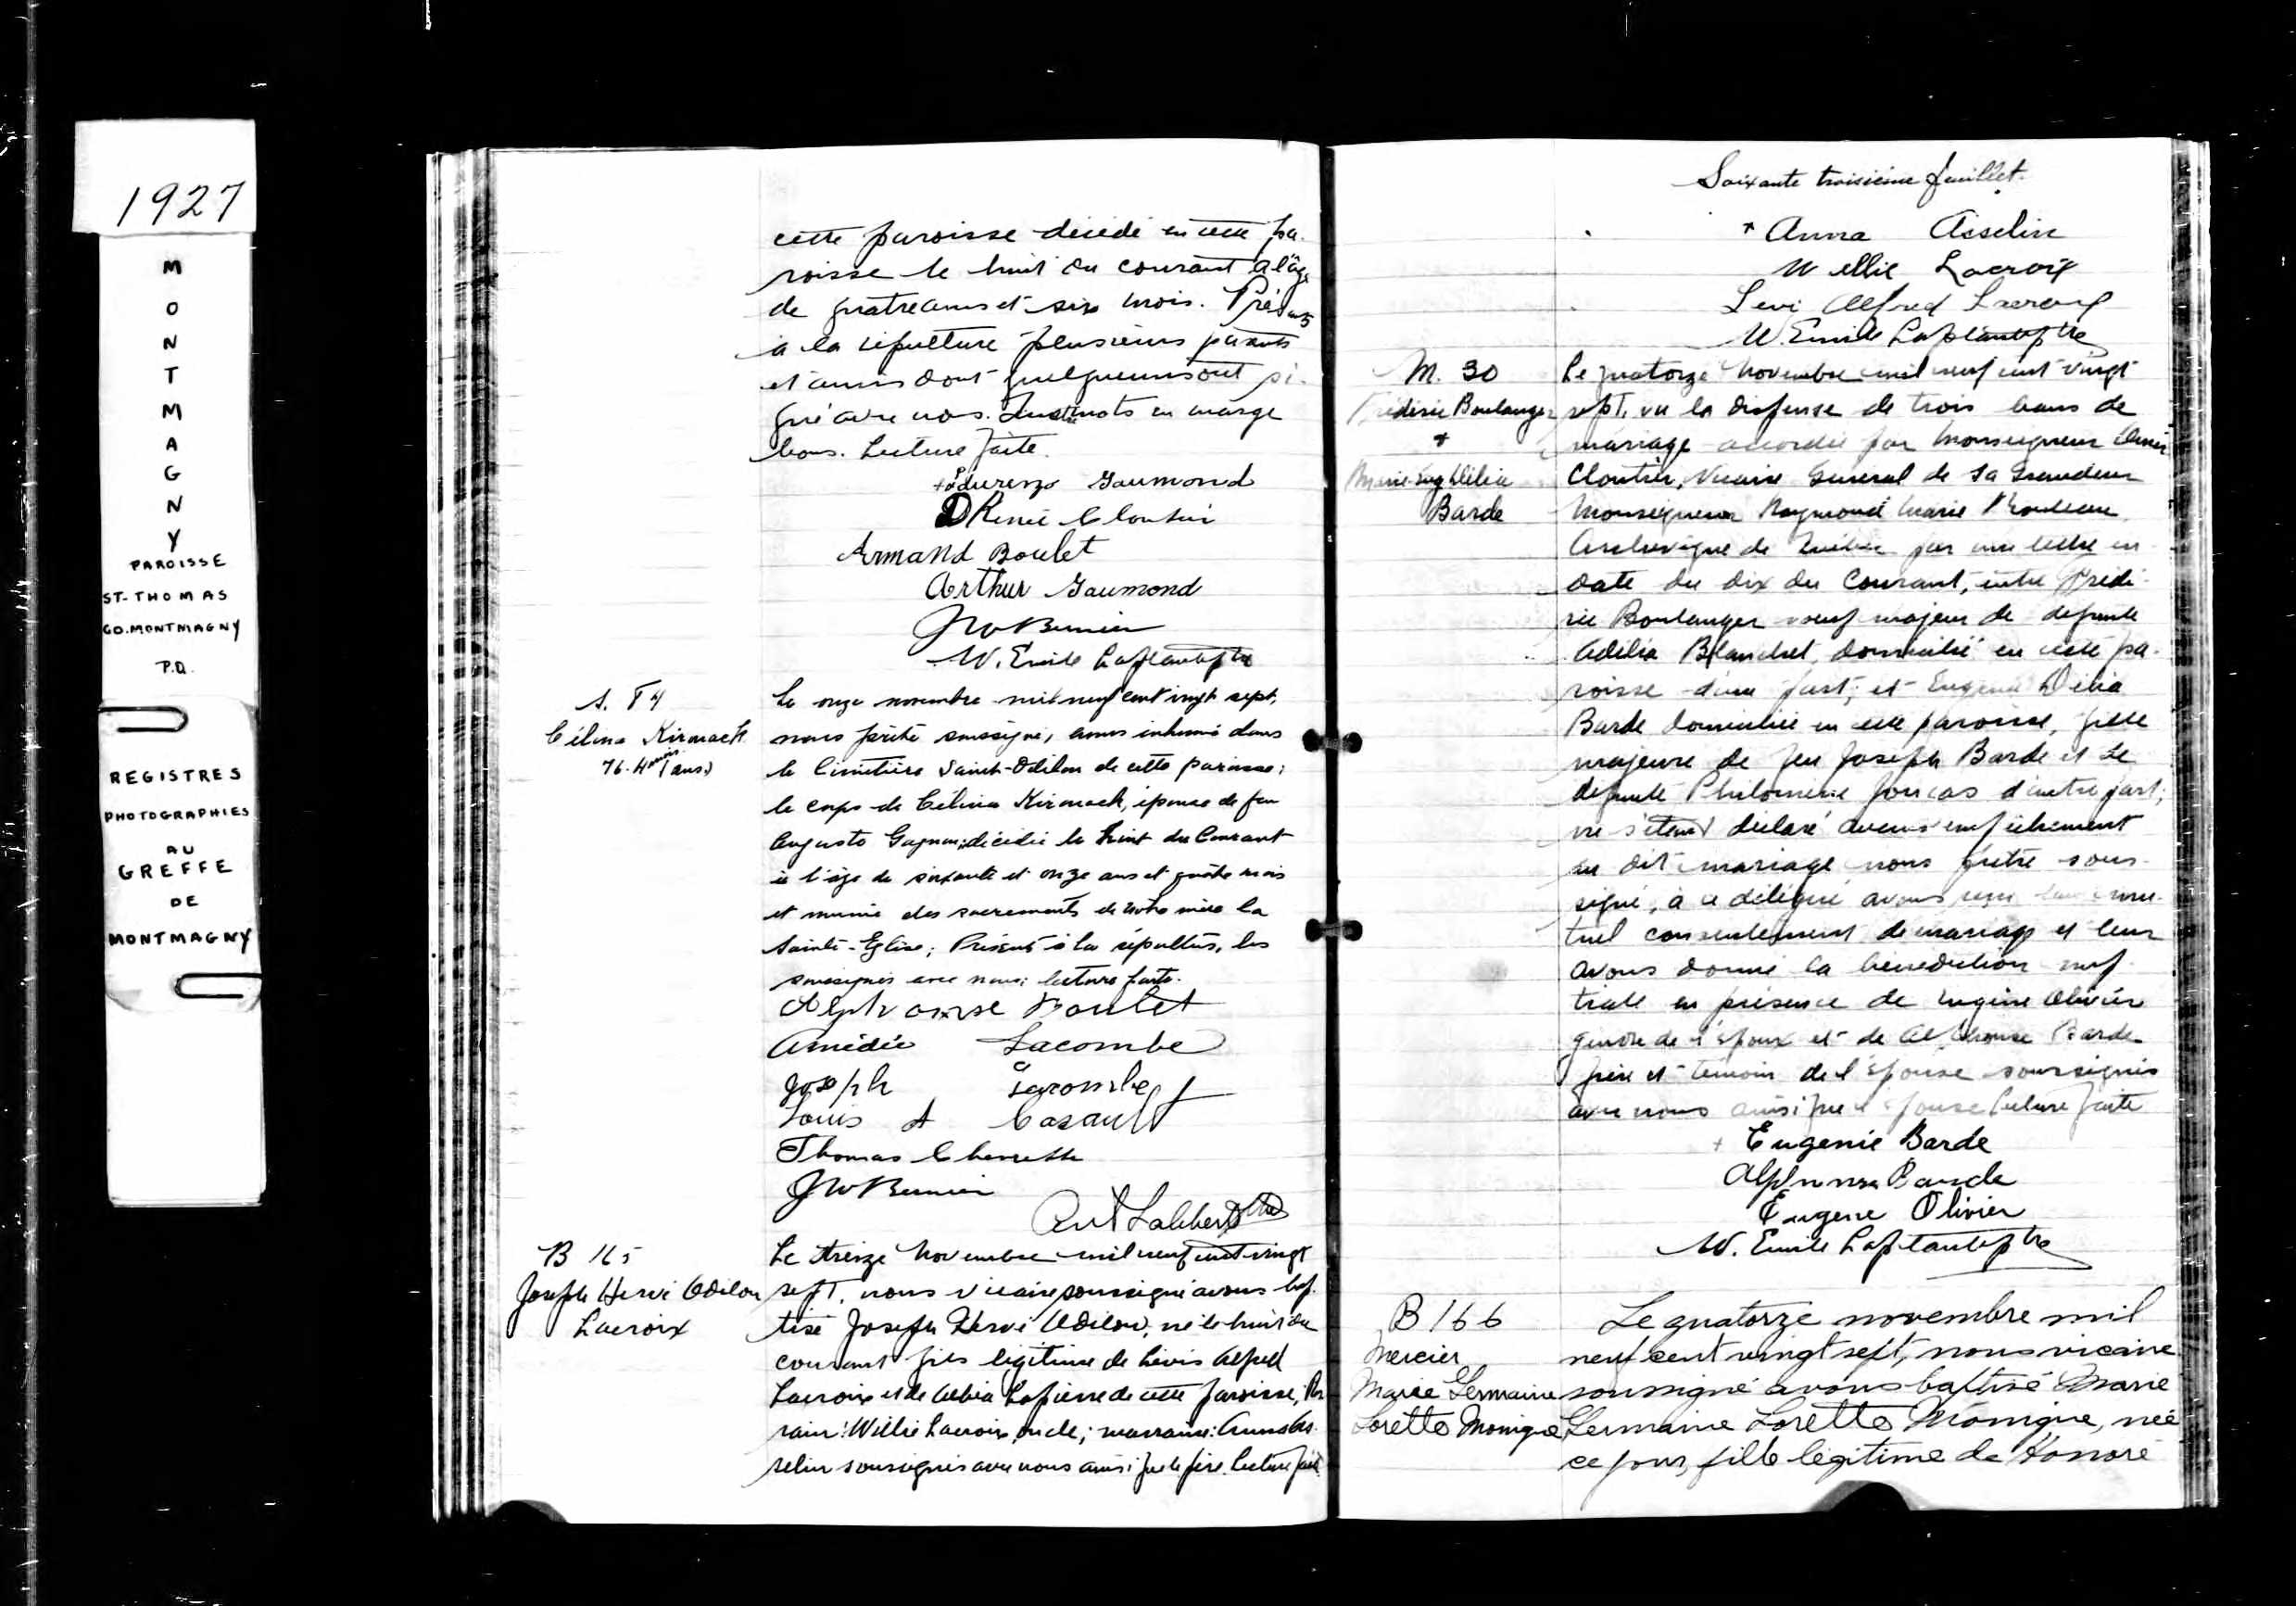 1927
M
O
N
T
M
A
G
N
Y
PAROISSE
ST-THOMAS
CO. MONTMAGNY
P.Q.
REGISTRES
PHOTOGRAPHIES
AU
GREFFE
DE
MONTMAGNY
cette paroisse décédé en cette pa-
roisse le huit du courant à l'âge
de quatre ans et six mois. Présents
à la sépulture plusieurs parents
et amis dont quelques uns ont si-
gné avec nous. mots en marge
bons. Lecture faite.
+ Laurenzo Gaumond
D René Cloutier
Armand Boulet
Arthur Gaumond
JW Bernier
W. Emile Laplante ptre
S. 84
Célina Kirouack
76. 4 mois (ans)
Le onze novembre mil neuf cent vingt sept,
nous prêtre soussigné, avons inhumé dans
le Cimetière Saint-Odilon de cette paroisse;
le corps de Célina Kirouack, épouse de feu
Auguste Gagnon; décédée le huit du Courant
à l'âge de soixante et onze ans et quatre mois
et munie des sacrements de notre mère la
Sainte-Eglise; Présents à la sépulture, les
soussignés avec nous; lecture faite.
Alphonse Boulet
Amédée Lacombe
Joseph Lacombe
Louis A Casault
Thomas Chouette
JW Bernier
Ptre
B 165
Joseph Hervé Odilon
Lacroix
Le treize Novembre mil neuf cent vingt
sept, nous vicaire soussigné avons bap-
tisé Joseph Hervé Odilon, né le huit du
courant fils légitime de Lévis Alfred
Lacroix et de Albéa Lapierre de cette paroisse; Par-
rain: Willie Lacroix, oncle; marraine: Anna As-
selin soussignés avec nous ainsi que le père. Lecture faite.
Soixante troisième feuillet.
+ Anna Asselin
Wellie Lacroix
Levi Alfred Lacroix
W. Emile Laplante ptre
M. 30
Frédéric Boulanger
+
Marie-Eug Délia
Barde
Le quatorze Novembre mil neuf cent vingt
sept, vu la dispense de trois bans de
mariage accordée par Monseigneur Omer
Cloutier, Vicaire Général de Sa Grandeur
Monseigneur Raymond Marie Rouleau
Archevêque de Québec par une lettre en
date du dix du Courant, entre Frédé-
ric Boulanger veuf majeur de défunte
Adélia Blanchet, domicilié en cette pa-
roisse d'une part; et Eugénie Délia
Barde domiciliée en cette paroisse, fille
majeure de feu Joseph Barde et de
défunte Philomène Joncas d'autre part;
ne s'étant déclaré aucun empêchement
au dit mariage nous prêtre sous-
signé, à ce délégué avons reçu leur mu-
tuel consentement de mariage et leur
avons donné la bénédiction nup-
tiale en présence de Eugène Olivier
gendre de l'époux et de Alphonse Barde
frère et témoin de l'épouse soussignés
avec nous ainsi que l'épouse lecture faite
+ Eugenie Barde
Alphonse Barde
Eugene Olivier
W. Emile Laplante ptre
B 166
Mercier
Marie Germaine
Lorette Monique
Le quatorze novembre mil
neuf cent vingt sept, nous vicaire
soussigné avons baptisé Marie
Germaine Lorette Monique, née
ce jour, fille légitime de Honoré